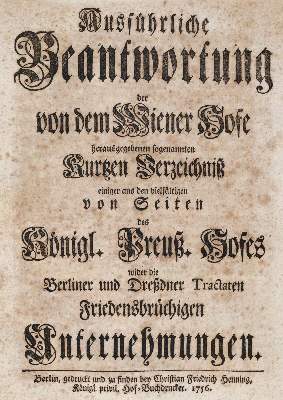 Ausführliche
Beantwortung
der
von dem Wiener Hofe
herausgegebenen sogenannten
Kurtzen Verzeichniß
einiger aus den vielfältigen
von Seiten
des
Königl. Preuß. Hofes
wider die
Berliner und Dreßdner Tractaten
Friedensbrüchigen
Unternehmungen.
Berlin, gedruckt und zu finden bey Christian Friedrich Henning,
Königl. privil. Hof-Buchdrucker. 1756.